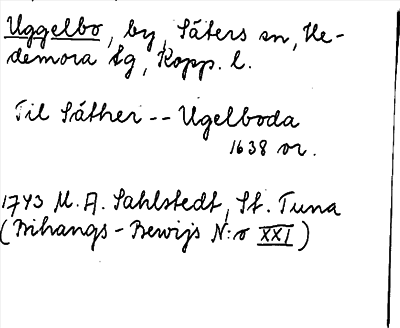 Uggelbo, by, Säters sn, He-
demora tg, Kopp. l.
Til Säther -- Ugelboda
1638 or.
1743 M. A. Sahlstedt, St. Tuna
(Bihangs-Bewijs N:o XXI)